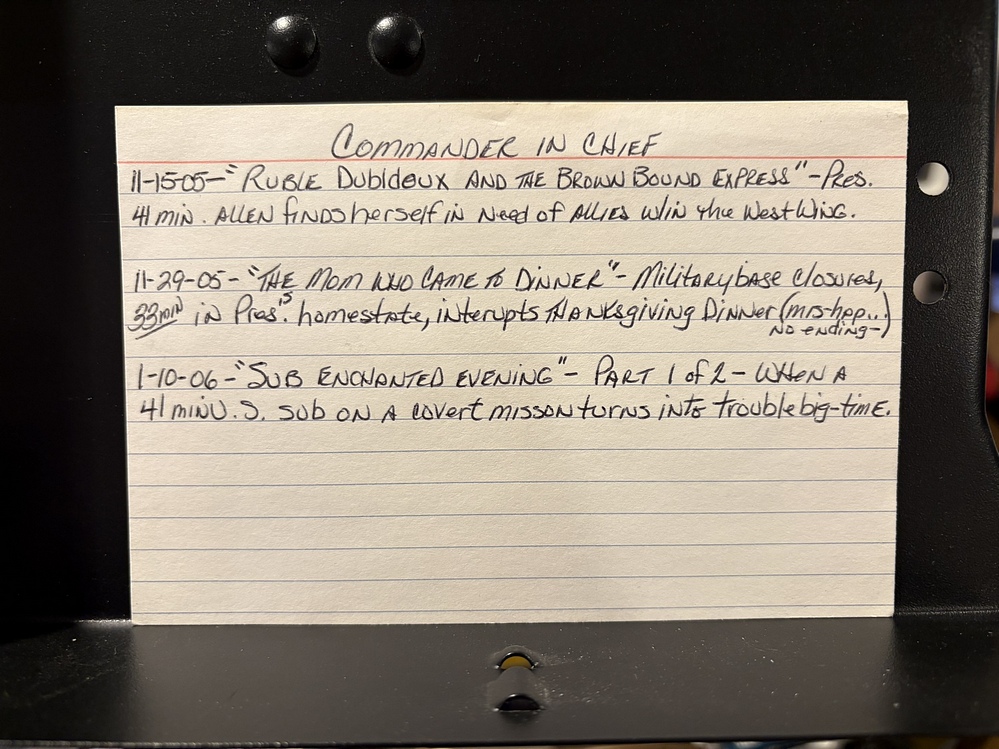 COMMANDER IN CHIEF
11-15-05-"RUBIE DUBIDOUX AND THE BROWN BOUND EXPRESS"-PRES.
41 min. ALLEN finds herself in Need of ALLIES W/IN the West Wing.
11-29-05-"THE MOM WHO CAME TO DINNER"-Military base closures,
33min in Pres.'s homestate, interupts THANKSgiving Dinner (mrs-hpp...
NO ending-)
1-10-06-"SUB ENCHANTED EVENING"-PART 1 of 2-WHEN A
41 min U.S. sub ON A covert misson turns into trouble big-time.